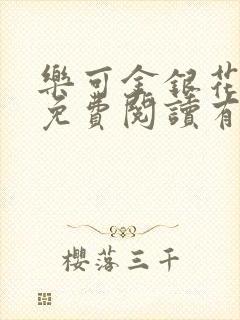 樂可金銀花
免費閱讀有
櫻落三千